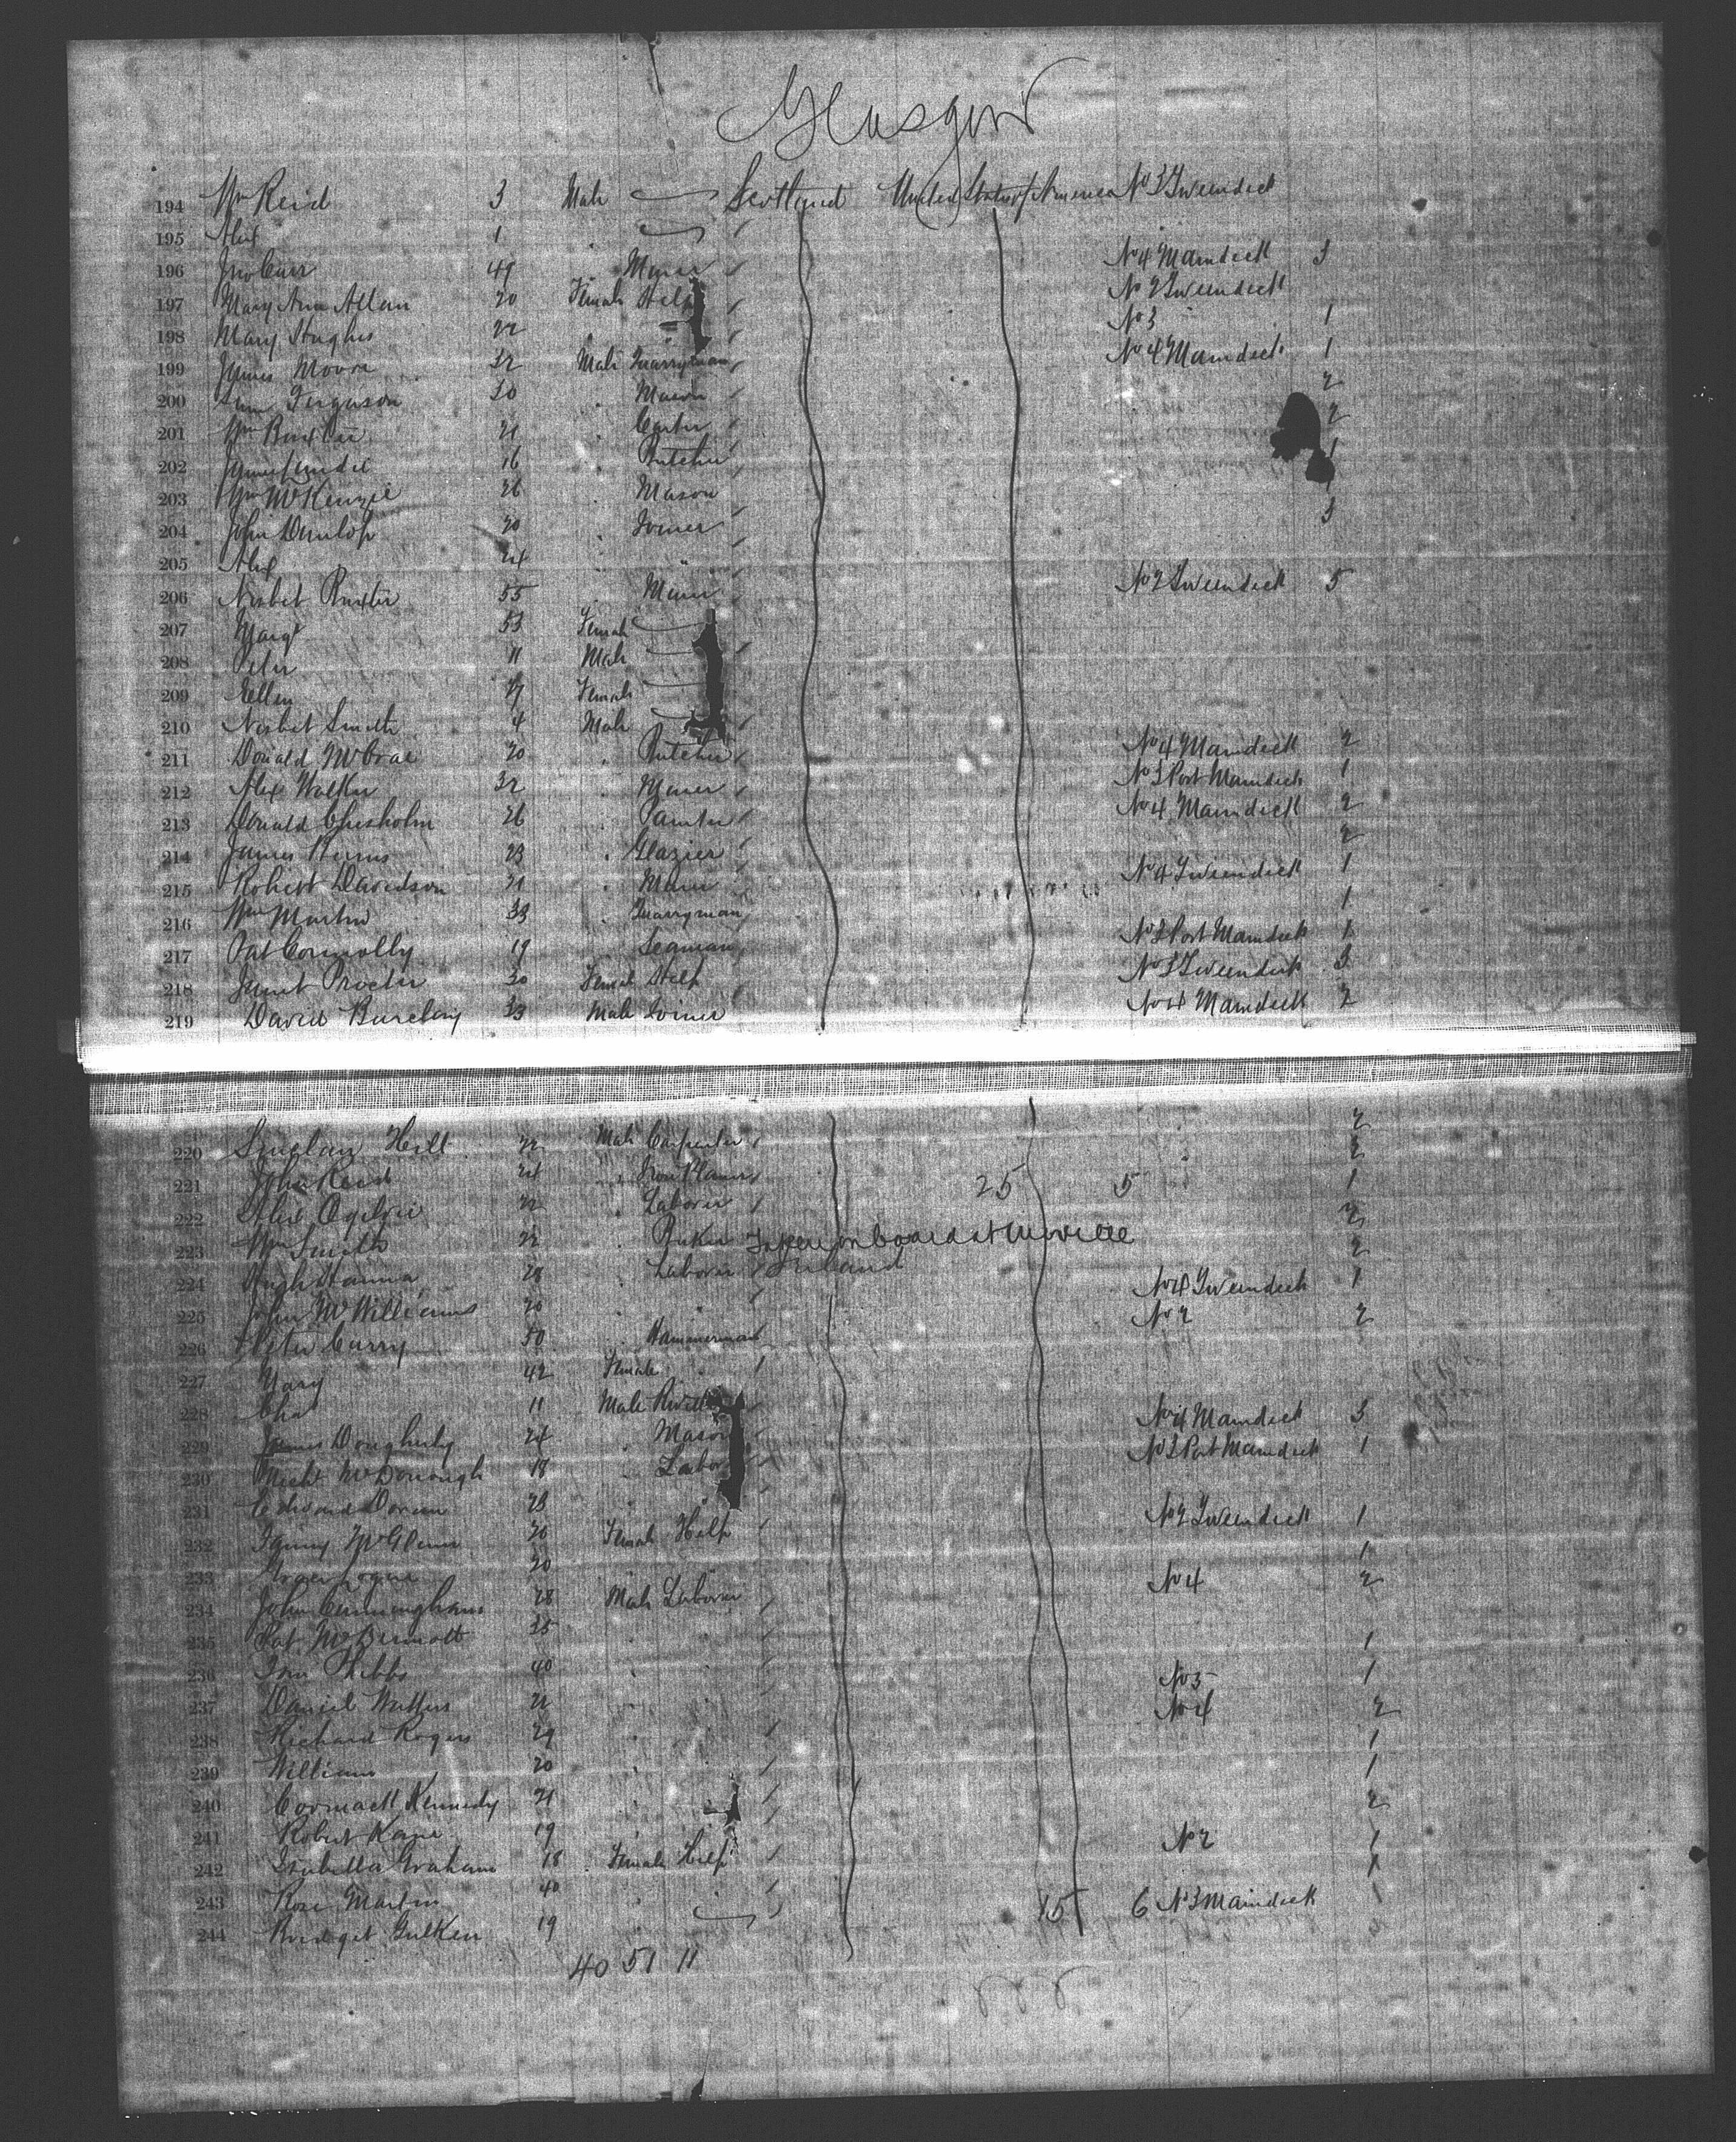 Glasgow
194 Wm Reid 3 Male Scotland United States America No 3 Tweendeck
195 Alex 1
196 Jno Carr 49 Miner No 4 Maindeck 3
197 Mary Ann Allan 20 Female Help No 2 Tweendeck
198 Mary Hughes 22 " No 3 1
199 James Moore 32 Male Quarryman No 4 Maindeck 1
200 Ferguson 30 Mason 2
201 Wm Baxter 21 Carter 2
202 James 16 Butcher 1
203 Wm McKenzie 26 Mason
204 John Dunlop 20 Joiner 3
205 Alex 24
206 Nisbet Baxter 55 Miner No 2 Tweendeck 5
207 Margt 53 Female
208 Peter 11 Male
209 Ellen 17 Female
210 Nisbet Smith 4 Male
211 Donald McCrae 20 Butcher No 4 Maindeck 2
212 Alex Walker 32 Miner No 3 Port Maindeck 1
213 Donald Chisholm 26 Painter No 4 Maindeck 2
214 James 23 Glazier 2
215 Robert Davidson 21 Miner No 4 Tweendeck 1
216 Wm Martin 33 Quarryman 1
217 Pat Connolly 19 Seaman No 3 Port Maindeck 1
218 Janet Procter 30 Female Help No 3 Tweendeck 3
219 David Barclay 33 Male Joiner No 4 Maindeck 2
220 Sinclair Hill 22 Male Carpenter 2
221 John Reid 24 Iron Planer 25 5
222 Alex Ogilvie 22 Laborer 1
223 Wm Smith 22 Baker Taken on board at Moville 2
224 Hugh Hanna 28 Laborer Ireland 2
225 John McWilliams 20 No 4 Tweendeck 1
226 Peter Curry 50 Hammerman No 2 2
227 Mary 42 Female
228 Chas 11 Male
229 James Dougherty 24 Mason No 4 Maindeck 3
230 Michl McDonough 18 Labor No 3 Port Maindeck 1
231 Edward Doran 23
232 Fanny McGlenn 20 Female Help No 2 Tweendeck 1
233 Grace Logue 20 1
234 John Cunningham 28 Male Laborer No 4 2
235 Pat McDermott 35
236 40 1
237 Daniel 22 No 3 1
238 Richard Rogers 29 No 4 2
239 William 20 1
240 Cormack Kennedy 21 1
241 Robert Kane 19 2
242 Isabella Graham 18 Female Help No 2 1
243 Rose Martin 40 1
244 Bridget 19 15 6 No 3 Maindeck
40 51 11